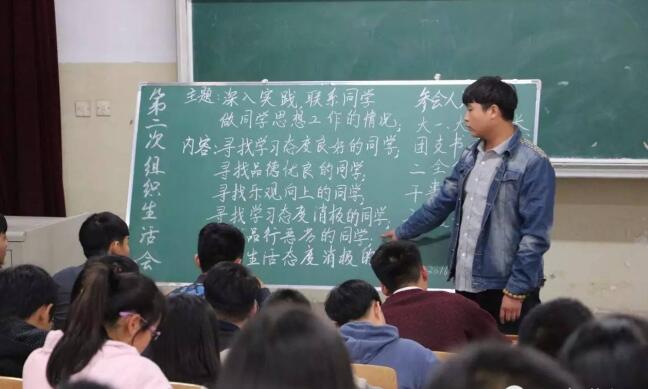 第二次组织生活会
主题:深入实践,联系同学
做同学思想工作的情况;
内容:寻找学习态度良好的同学;
寻找品德优良的同学;
寻找乐观向上的同学;
寻找学习态度消极的同学;
品行恶劣的同学;
生活态度消极的
参会人
大一
团支书
二全
干事